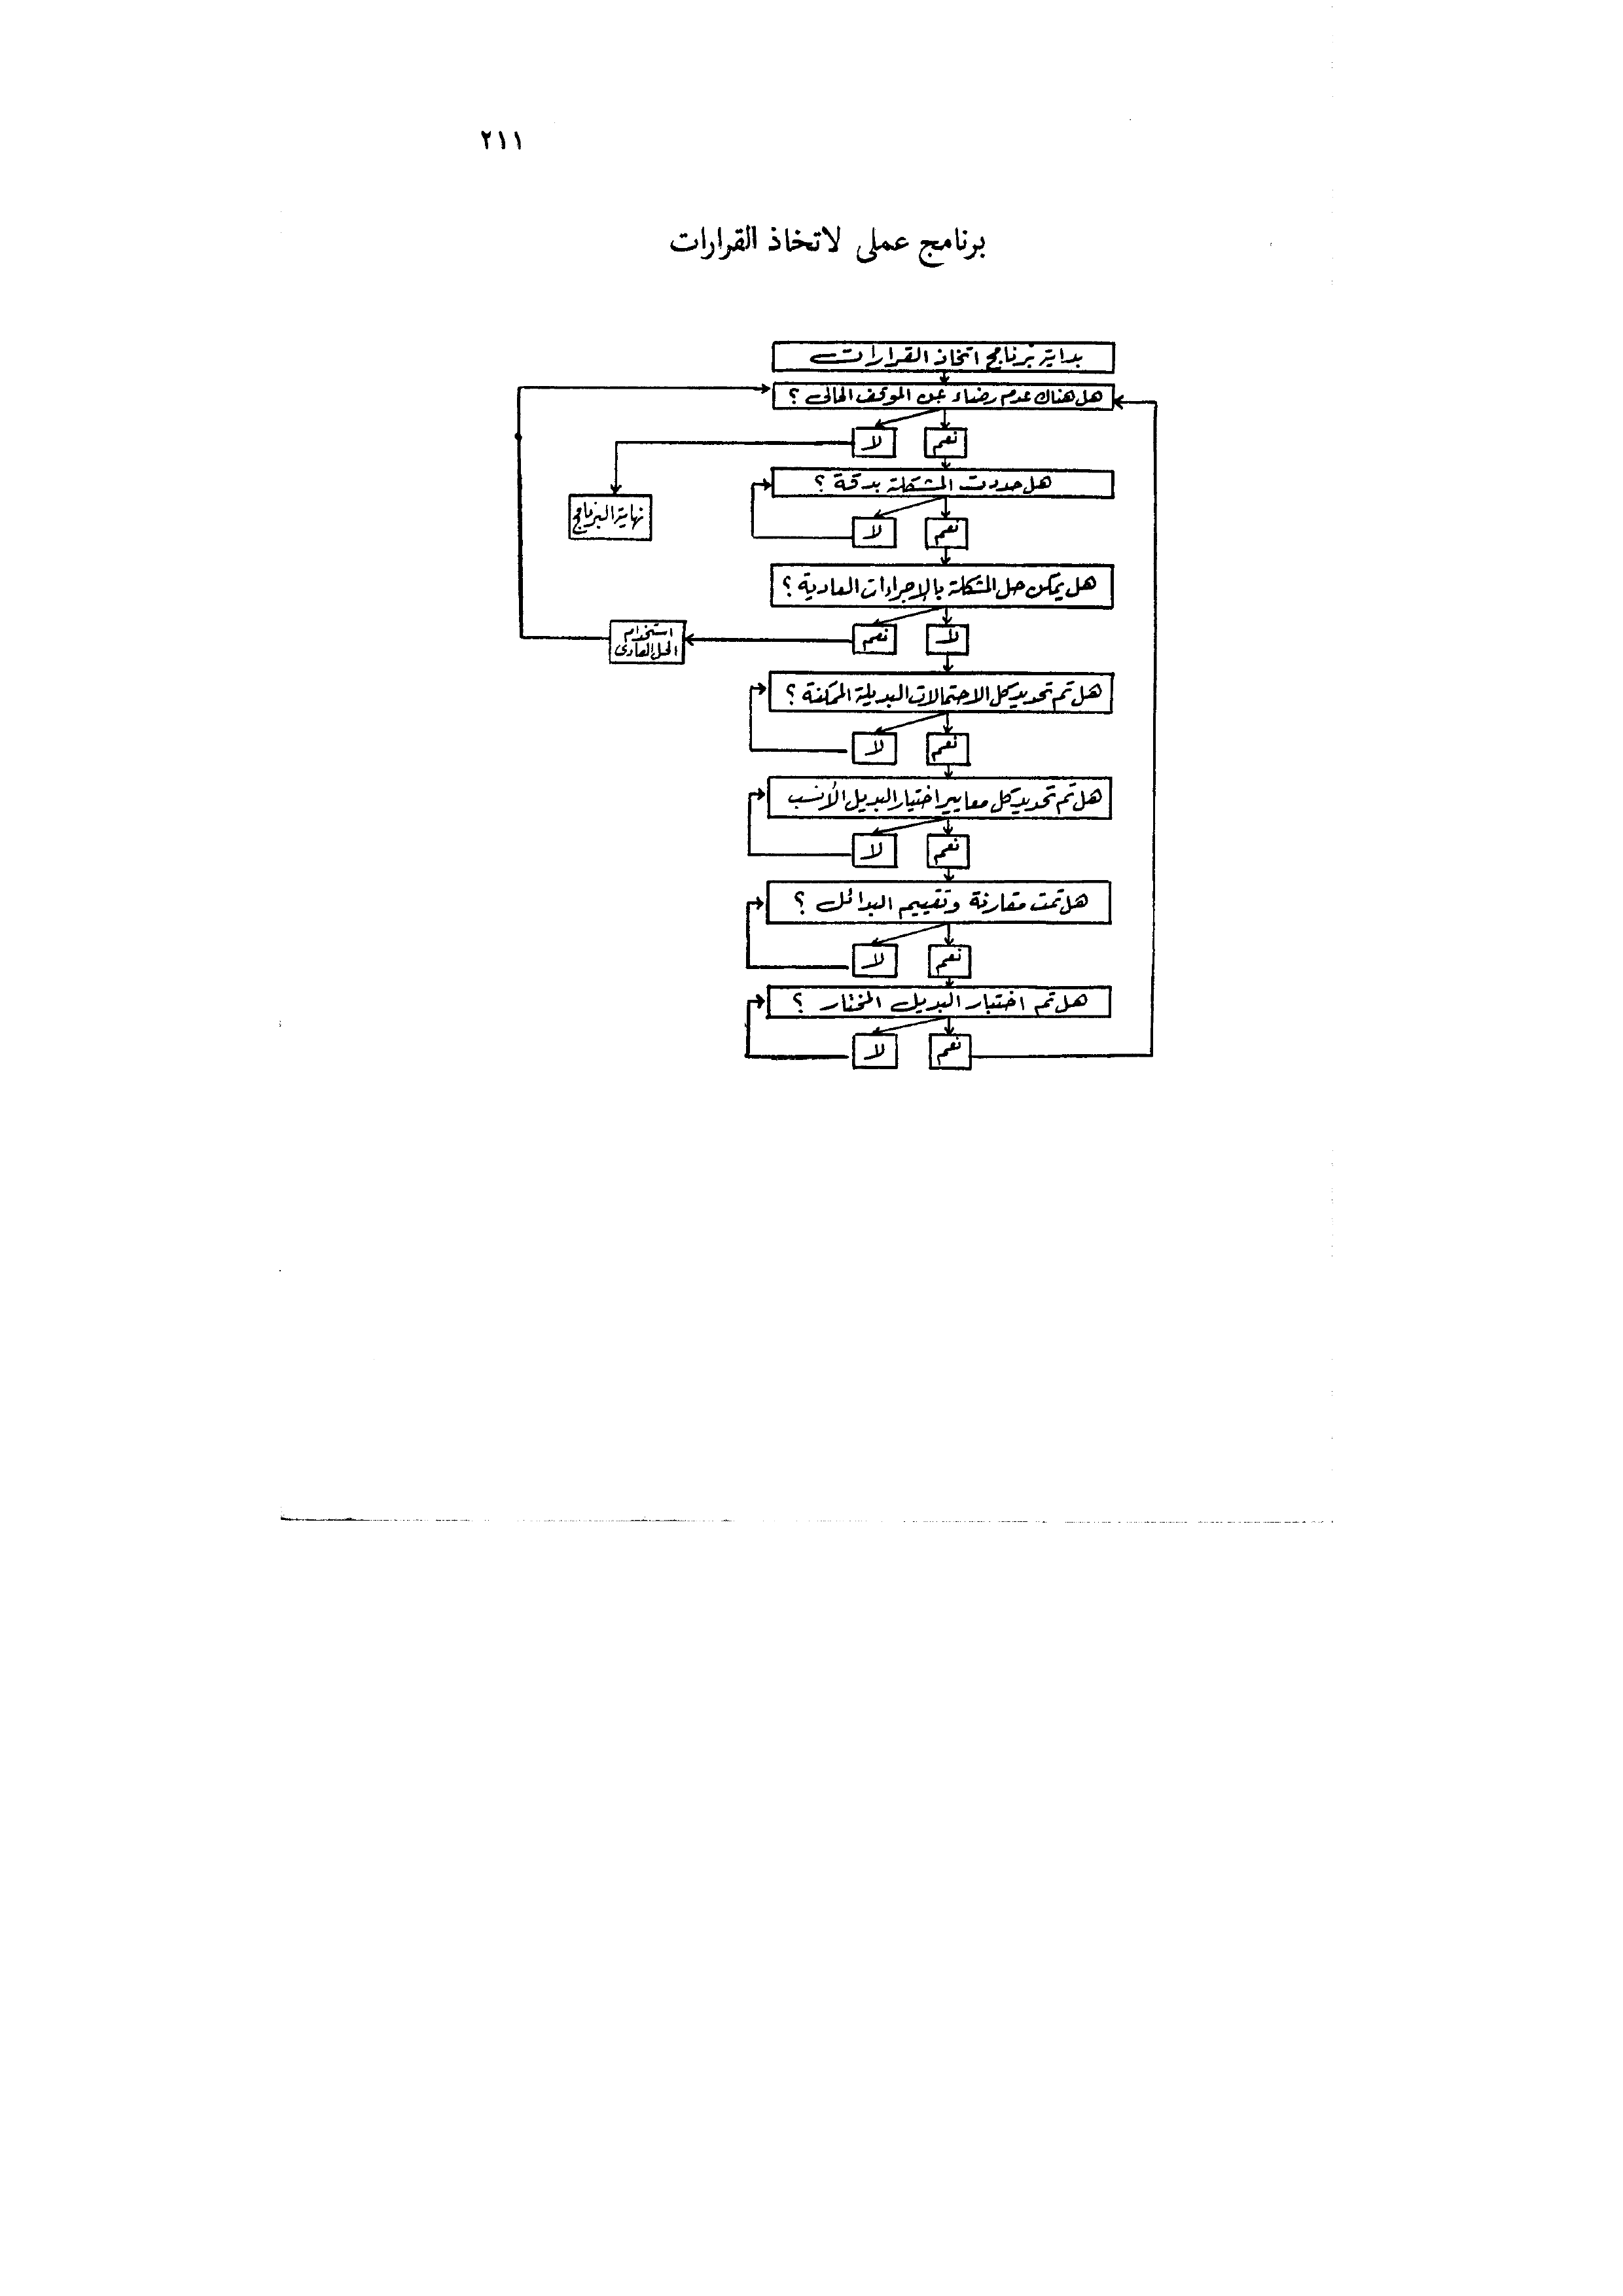 ٢١١
برنامج عملى لاتخاذ القرارات
بداية برنامج اتخاذ القرارات
هل هناك عدم رضاء عن الموقف الحالى ؟
نعم
لا
هل حددت المشكلة بدقة ؟
نهاية البرنامج
نعم
لا
هل يمكن حل المشكلة بالإجراءات العادية ؟
لا
نعم
استخدام
الحل العادى
هل تم تحديد كل الاحتمالات البديلة الممكنة ؟
نعم
لا
هل تم تحديد كل معايير اختيار البديل الأنسب
نعم
لا
هل تمت مقارنة وتقييم البدائل ؟
نعم
لا
هل تم اختبار البديل المختار ؟
نعم
لا